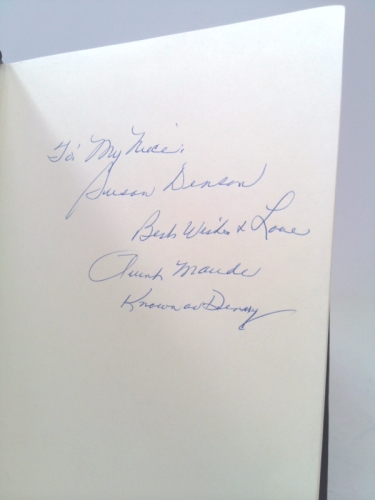 To: My Niece,
Susan Denson
Best Wishes & Love
Aunt Maude
Known as Denny